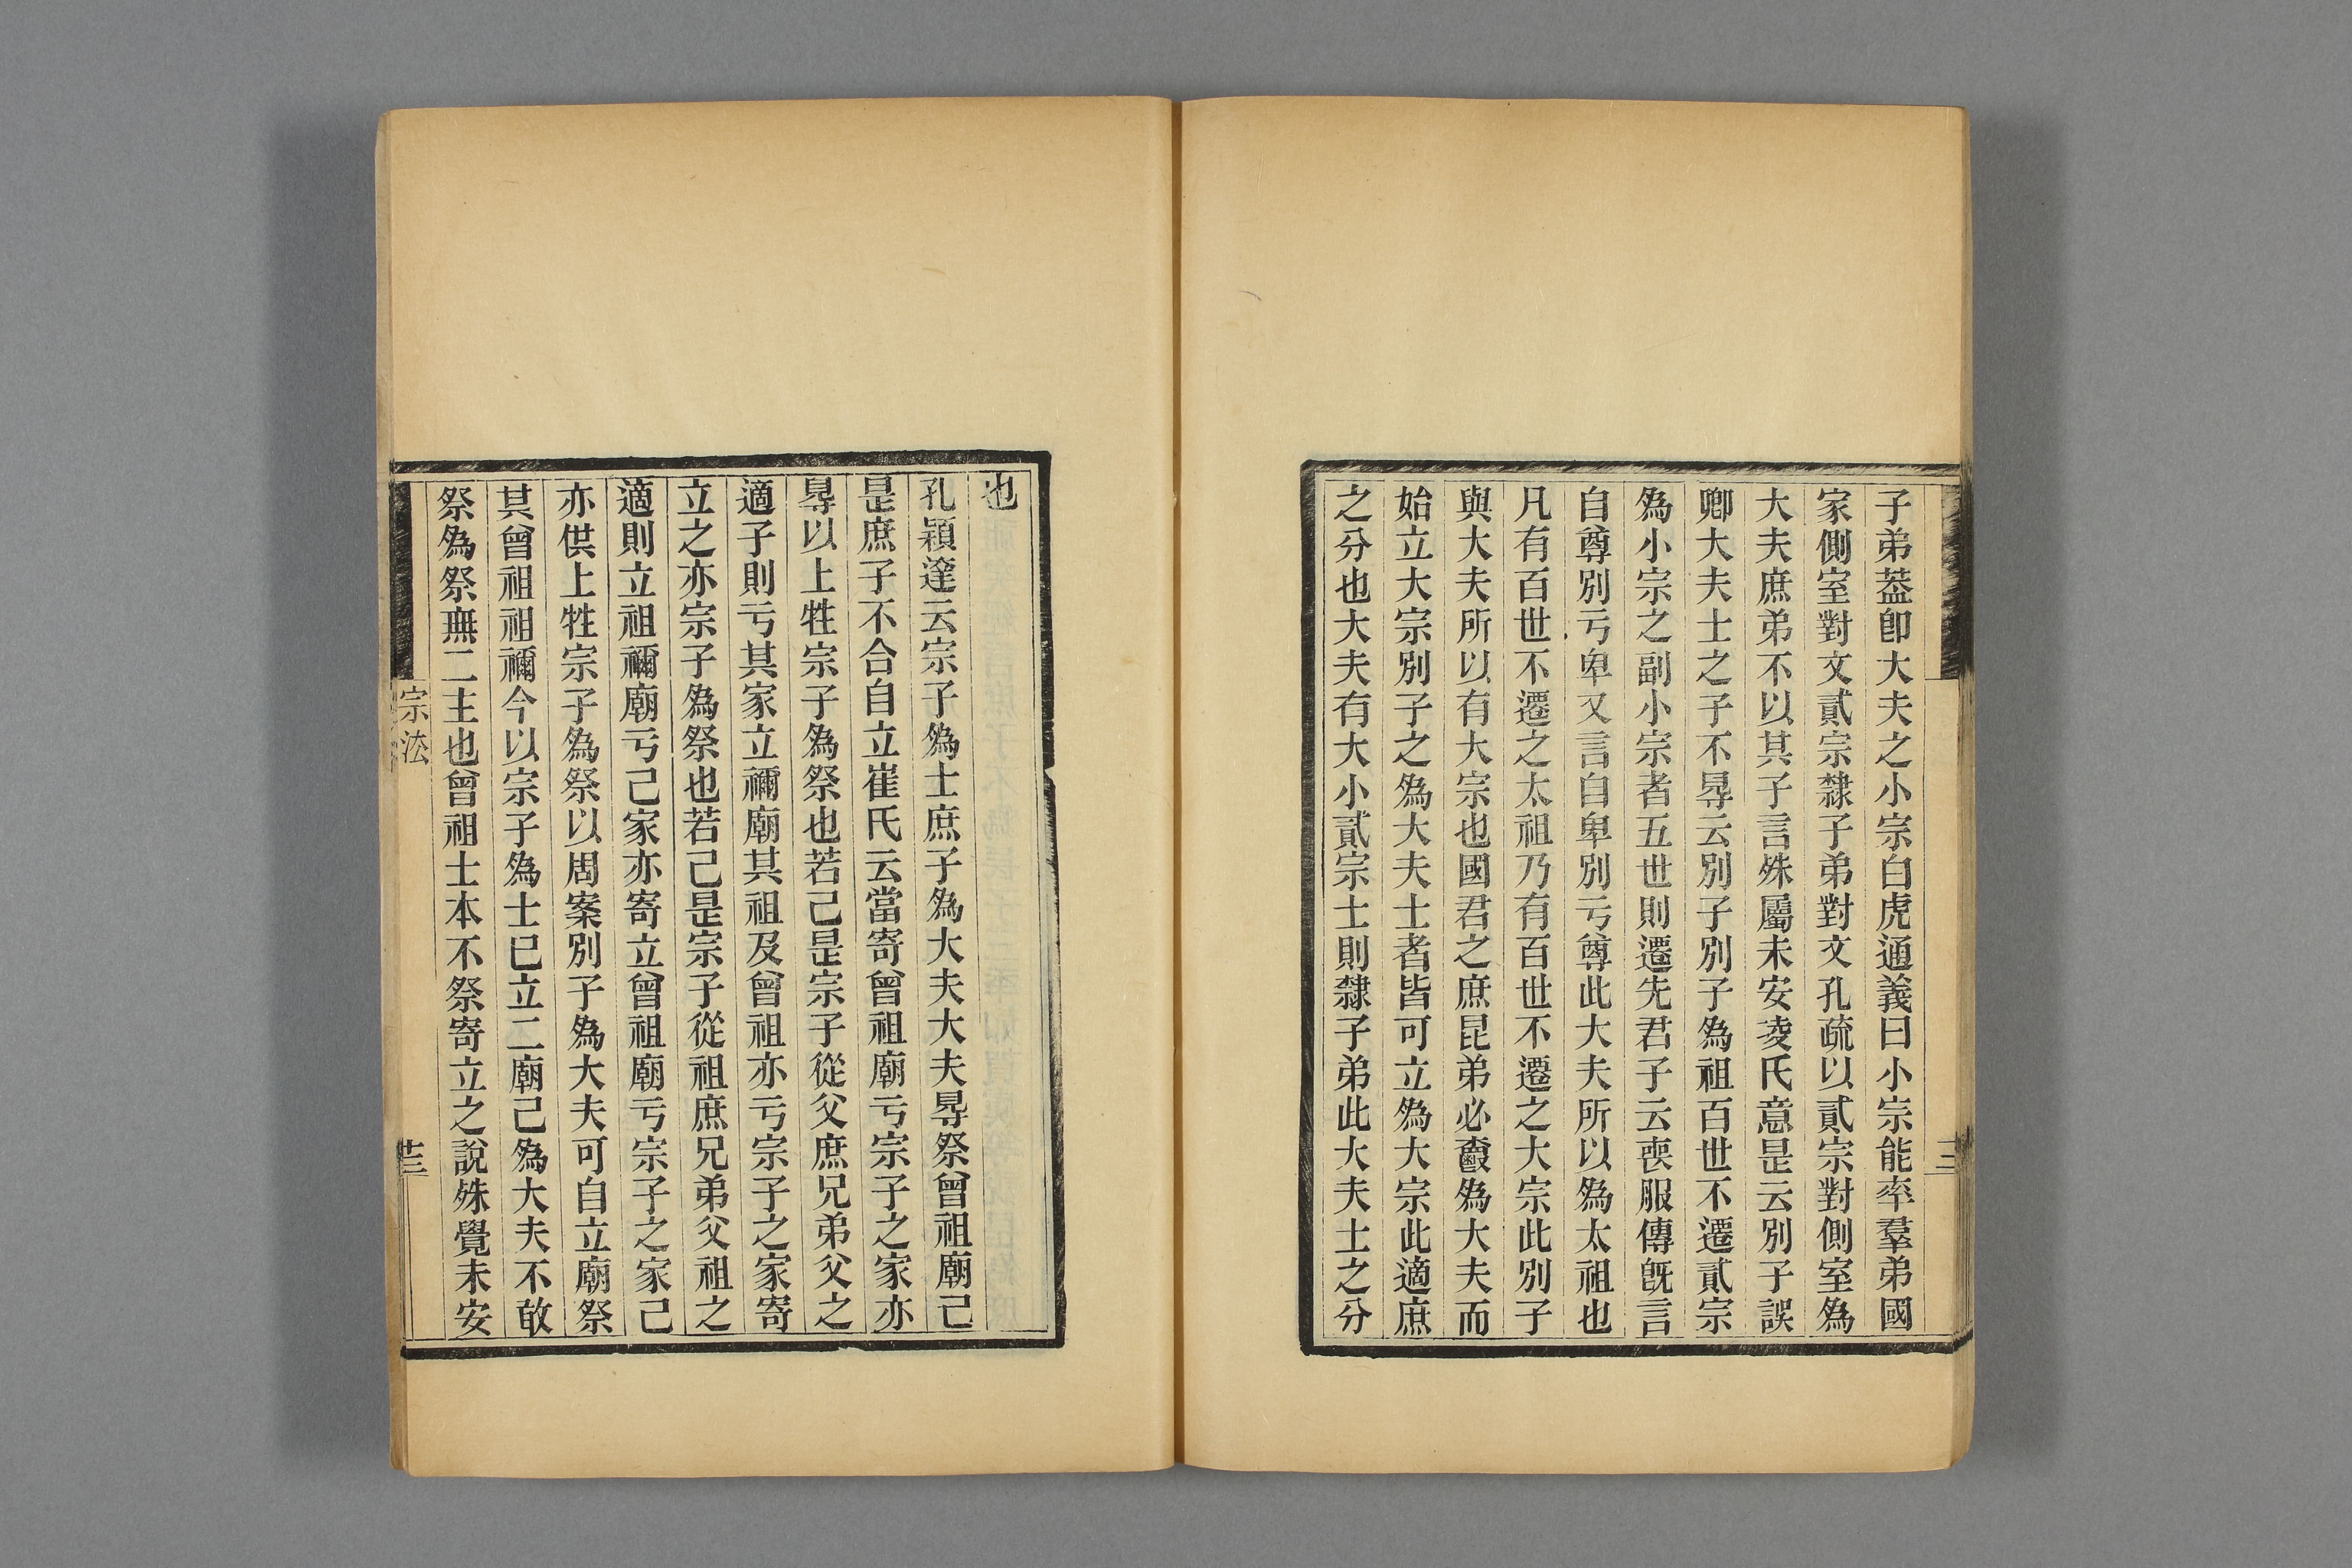 子弟葢卽大夫之小宗白虎通義曰小宗能率羣弟國
家側室對文貳宗隸子弟對文孔疏以貳宗對側室爲
大夫庶弟不以其子言殊屬未安凌氏意是云別子誤
卿大夫士之子不㝵云別子別子爲祖百世不遷貳宗
爲小宗之副小宗者五世則遷先君子云喪服傳旣言
自尊別亏卑又言自卑別亏尊此大夫所以爲太祖也
凡有百世不遷之太祖乃有百世不遷之大宗此別子
與大夫所以有大宗也國君之庶昆弟必爲大夫而
始立大宗別子之爲大夫士者皆可立爲大宗此適庶
之分也大夫有大小貳宗士則隸子弟此大夫士之分
三
也
孔穎達云宗子爲士庶子爲大夫大夫㝵祭曾祖廟己
是庶子不合自立崔氏云當寄曾祖廟亏宗子之家亦
㝵以上牲宗子爲祭也若己是宗子從父庶兄弟父之
適子則亏其家立禰廟其祖及曾祖亦亏宗子之家寄
立之亦宗子爲祭也若己是宗子從祖庶兄弟父祖之
適則立祖禰廟亏己家亦寄立曾祖廟亏宗子之家己
亦供上牲宗子爲祭以周案別子爲大夫可自立廟祭
其曾祖祖禰今以宗子爲士已立二廟己爲大夫不敢
祭爲祭無二主也曾祖士本不祭寄立之說殊覺未安
宗法
廿三